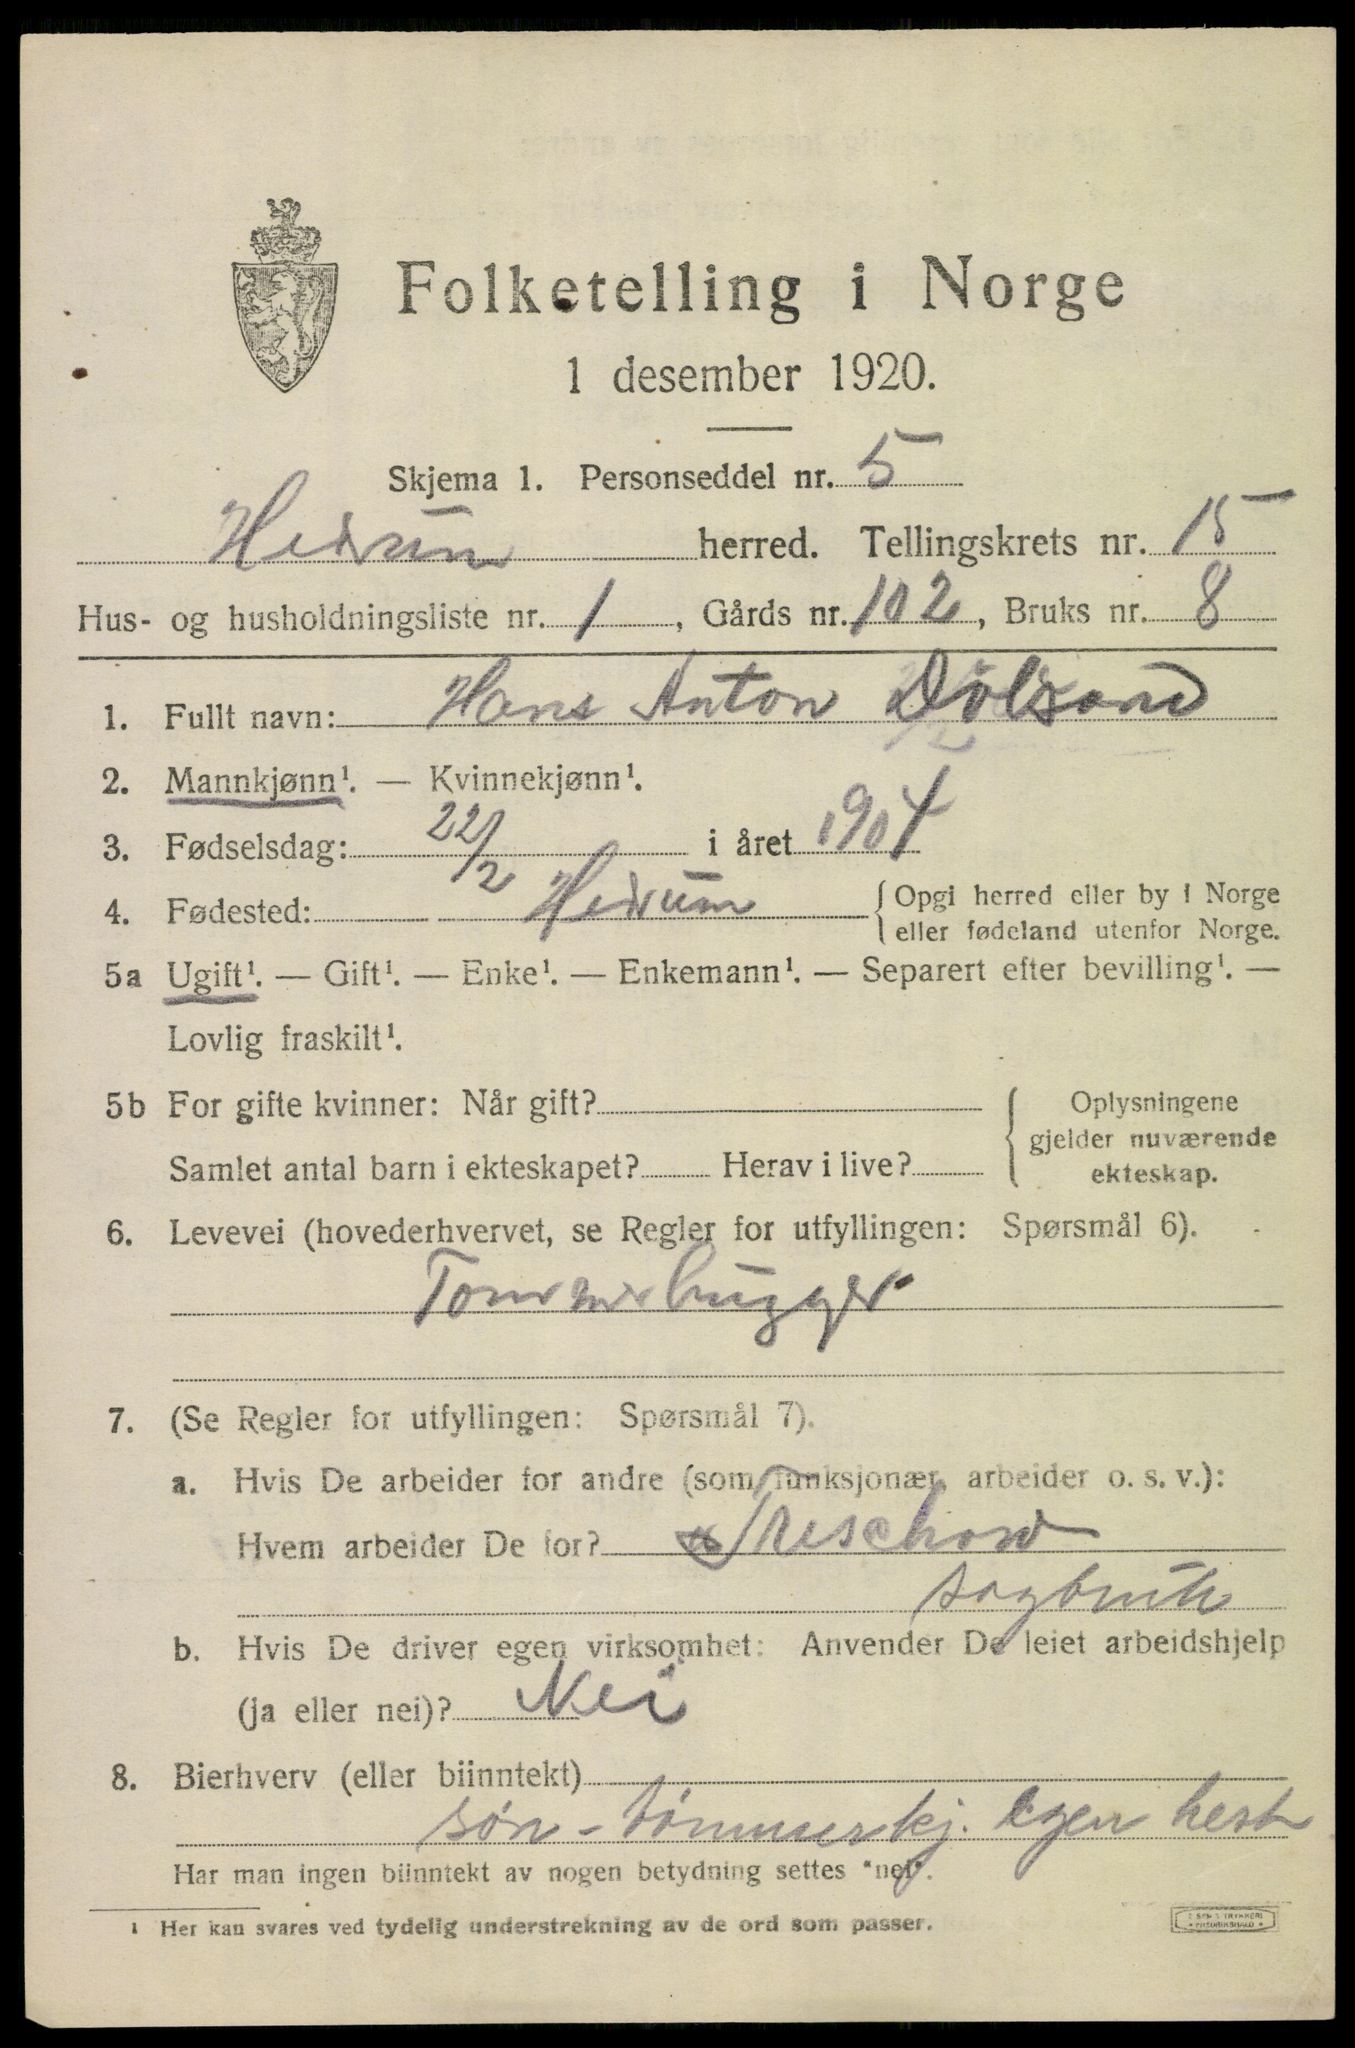 Folketelling i Norge
1 desember 1920.
Skjema 1. Personseddel nr. 5
Hedrum herred. Tellingskrets nr. 15
Hus- og husholdningsliste nr. 1, Gårds nr. 102, Bruks nr. 8
1. Fullt navn: Hans Anton
2. Mannkjønn¹. — Kvinnekjønn¹.
3. Fødselsdag: 22/2 i året 1904
4. Fødested: Hedrum { Opgi herred eller by i Norge
eller fødeland utenfor Norge.
5a Ugift¹. — Gift¹. — Enke¹. — Enkemann¹. — Separert efter bevilling¹. —
Lovlig fraskilt¹.
5b For gifte kvinner: Når gift? { Oplysningene
gjelder nuværende
Samlet antal barn i ekteskapet? Herav i live?
ekteskap.
6. Levevei (hovederhvervet, se Regler for utfyllingen: Spørsmål 6).
Tømmerhugger
7. (Se Regler for utfyllingen: Spørsmål 7).
a. Hvis De arbeider for andre (som funksjonær, arbeider o. s. v.):
Hvem arbeider De for? Treschow
sagbruk
b. Hvis De driver egen virksomhet: Anvender De leiet arbeidshjelp
(ja eller nei)? Nei
8. Bierhverv (eller biinntekt)
søn - tømmerkj. egen hest
Har man ingen biinntekt av nogen betydning settes "nei".
¹ Her kan svares ved tydelig understrekning av de ord som passer.